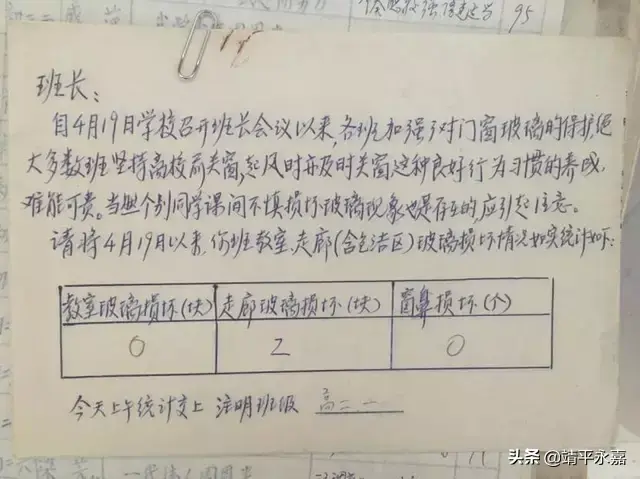 95
班长:
自4月19日学校召开班长会议以来,各班加强了对门窗玻璃的保护,绝
大多数班坚持离校前关窗,起风时亦及时关窗,这种良好行为习惯的养成,
难能可贵。当然个别同学课间不慎损坏玻璃现象也是存在的,应引起注意。
请将4月19日以来,你班教室,走廊(含包洁区)玻璃损坏情况如实统计如下:
教室玻璃损坏(块) 走廊玻璃损坏(块) 窗鼻损坏(个)
0 2 0
今天上午统计交上 注明班级 高二.一
头条 @靖平永嘉